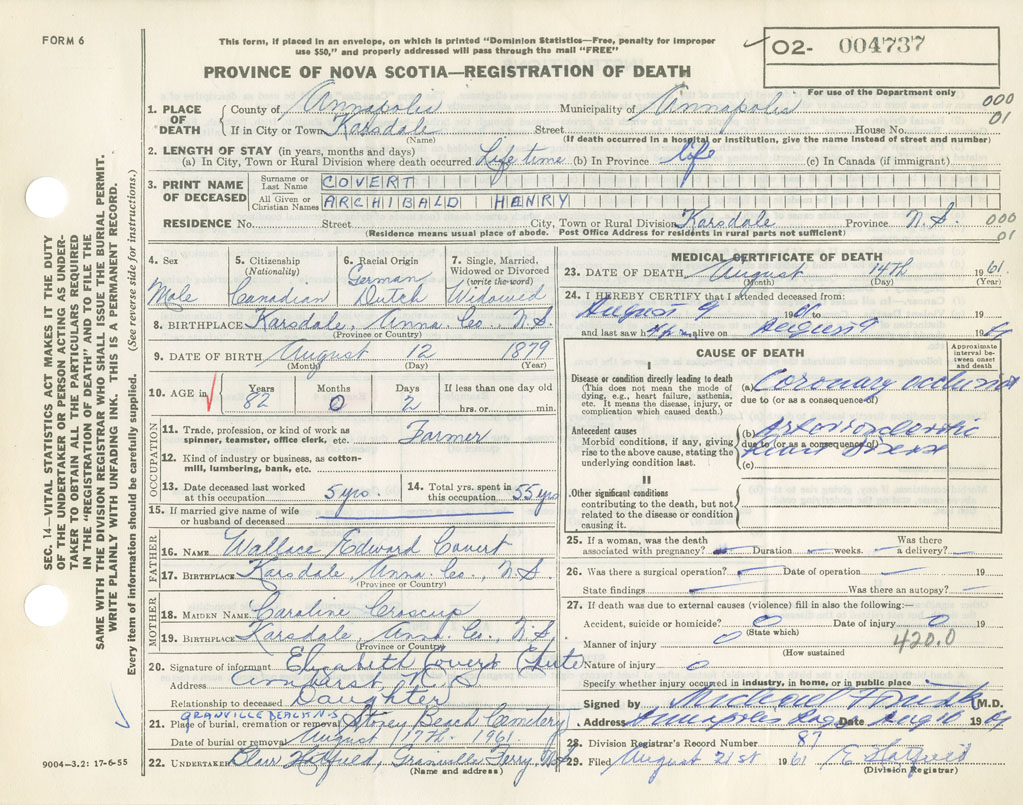 FORM 6
This form, if placed in an envelope, on which is printed "Dominion Statistics—Free, penalty for improper
use $50," and properly addressed will pass through the mail "FREE"
02- 004737
PROVINCE OF NOVA SCOTIA—REGISTRATION OF DEATH
For use of the Department only
000
01
1. PLACE OF DEATH
County of Annapolis Municipality of Annapolis
If in City or Town Karsdale Street House No.
(Name) (If death occurred in a hospital or institution, give the name instead of street and number)
2. LENGTH OF STAY (in years, months and days)
(a) In City, Town or Rural Division where death occurred Life time (b) In Province Life (c) In Canada (if immigrant)
3. PRINT NAME OF DECEASED
Surname or Last Name COVERT
All Given or Christian Names ARCHIBALD HENRY
RESIDENCE No. Street City, Town or Rural Division Karsdale Province N.S.
000
01
(Residence means usual place of abode. Post Office Address for residents in rural parts not sufficient)
4. Sex
Male
5. Citizenship
(Nationality)
Canadian
6. Racial Origin
German
Dutch
7. Single, Married,
Widowed or Divorced
(write the word)
Widowed
8. BIRTHPLACE Karsdale, Anna. Co., N.S.
(Province or Country)
9. DATE OF BIRTH August 12 1879
(Month) (Day) (Year)
10. AGE in
Years 82
Months 0
Days 2
If less than one day old
hrs. or min.
OCCUPATION
11. Trade, profession, or kind of work as
spinner, teamster, office clerk, etc. Farmer
12. Kind of industry or business, as cotton-
mill, lumbering, bank, etc.
13. Date deceased last worked
at this occupation 5 yrs.
14. Total yrs. spent in
this occupation 55 yrs
15. If married give name of wife
or husband of deceased
FATHER
16. NAME Wallace Edward Covert
17. BIRTHPLACE Karsdale, Anna. Co., N.S.
(Province or Country)
MOTHER
18. MAIDEN NAME Caroline Croscup
19. BIRTHPLACE Karsdale, Anna. Co., N.S.
(Province or Country)
20. Signature of informant Elizabeth Covert Chute
Address Amherst, N.S
Relationship to deceased Daughter
GRANVILLE BEACH N.S
21. Place of burial, cremation or removal Stoney Beach Cemetery
Date of burial or removal August 17th. 1961.
22. UNDERTAKER Blair Hatfield, Granville Ferry, N.S
(Name and address)
MEDICAL CERTIFICATE OF DEATH
23. DATE OF DEATH August 14TH 1961
(Month) (Day)
24. I HEREBY CERTIFY that I attended deceased from:
August 9 1961 to 19
and last saw him alive on August 9 1961
CAUSE OF DEATH
Approximate
interval be-
tween onset
and death
I
Disease or condition directly leading to death
(This does not mean the mode of
dying, e.g., heart failure, asthenia,
etc. It means the disease, injury, or
complication which caused death.)
(a) Coronary occlusion
due to (or as a consequence of)
Antecedent causes
Morbid conditions, if any, giving
rise to the above cause, stating the
underlying condition last.
(b) Arteriosclerotic
due to (or as a consequence of)
heart disease
(c)
II
Other significant conditions
contributing to the death, but not
related to the disease or condition
causing it.
25. If a woman, was the death
associated with pregnancy? Duration weeks. Was there
a delivery?
26. Was there a surgical operation? Date of operation 19
State findings Was there an autopsy?
27. If death was due to external causes (violence) fill in also the following:—
Accident, suicide or homicide? 0 Date of injury 0 19
(State which)
Manner of injury 0 420.0
(How sustained
Nature of injury 0
Specify whether injury occurred in industry, in home, or in public place
Signed by Michael M.D.
Address Annapolis Date Aug 16 1961
28. Division Registrar's Record Number 87
29. Filed August 21st 1961 E Hatfield
(Division Registrar)
SEC. 14—VITAL STATISTICS ACT MAKES IT THE DUTY
OF THE UNDERTAKER OR PERSON ACTING AS UNDER-
TAKER TO OBTAIN ALL THE PARTICULARS REQUIRED
IN THE "REGISTRATION OF DEATH" AND TO FILE THE
SAME WITH THE DIVISION REGISTRAR WHO SHALL ISSUE THE BURIAL PERMIT.
WRITE PLAINLY WITH UNFADING INK. THIS IS A PERMANENT RECORD.
Every item of information should be carefully supplied. (See reverse side for instructions.)
9004—3.2: 17-6-55